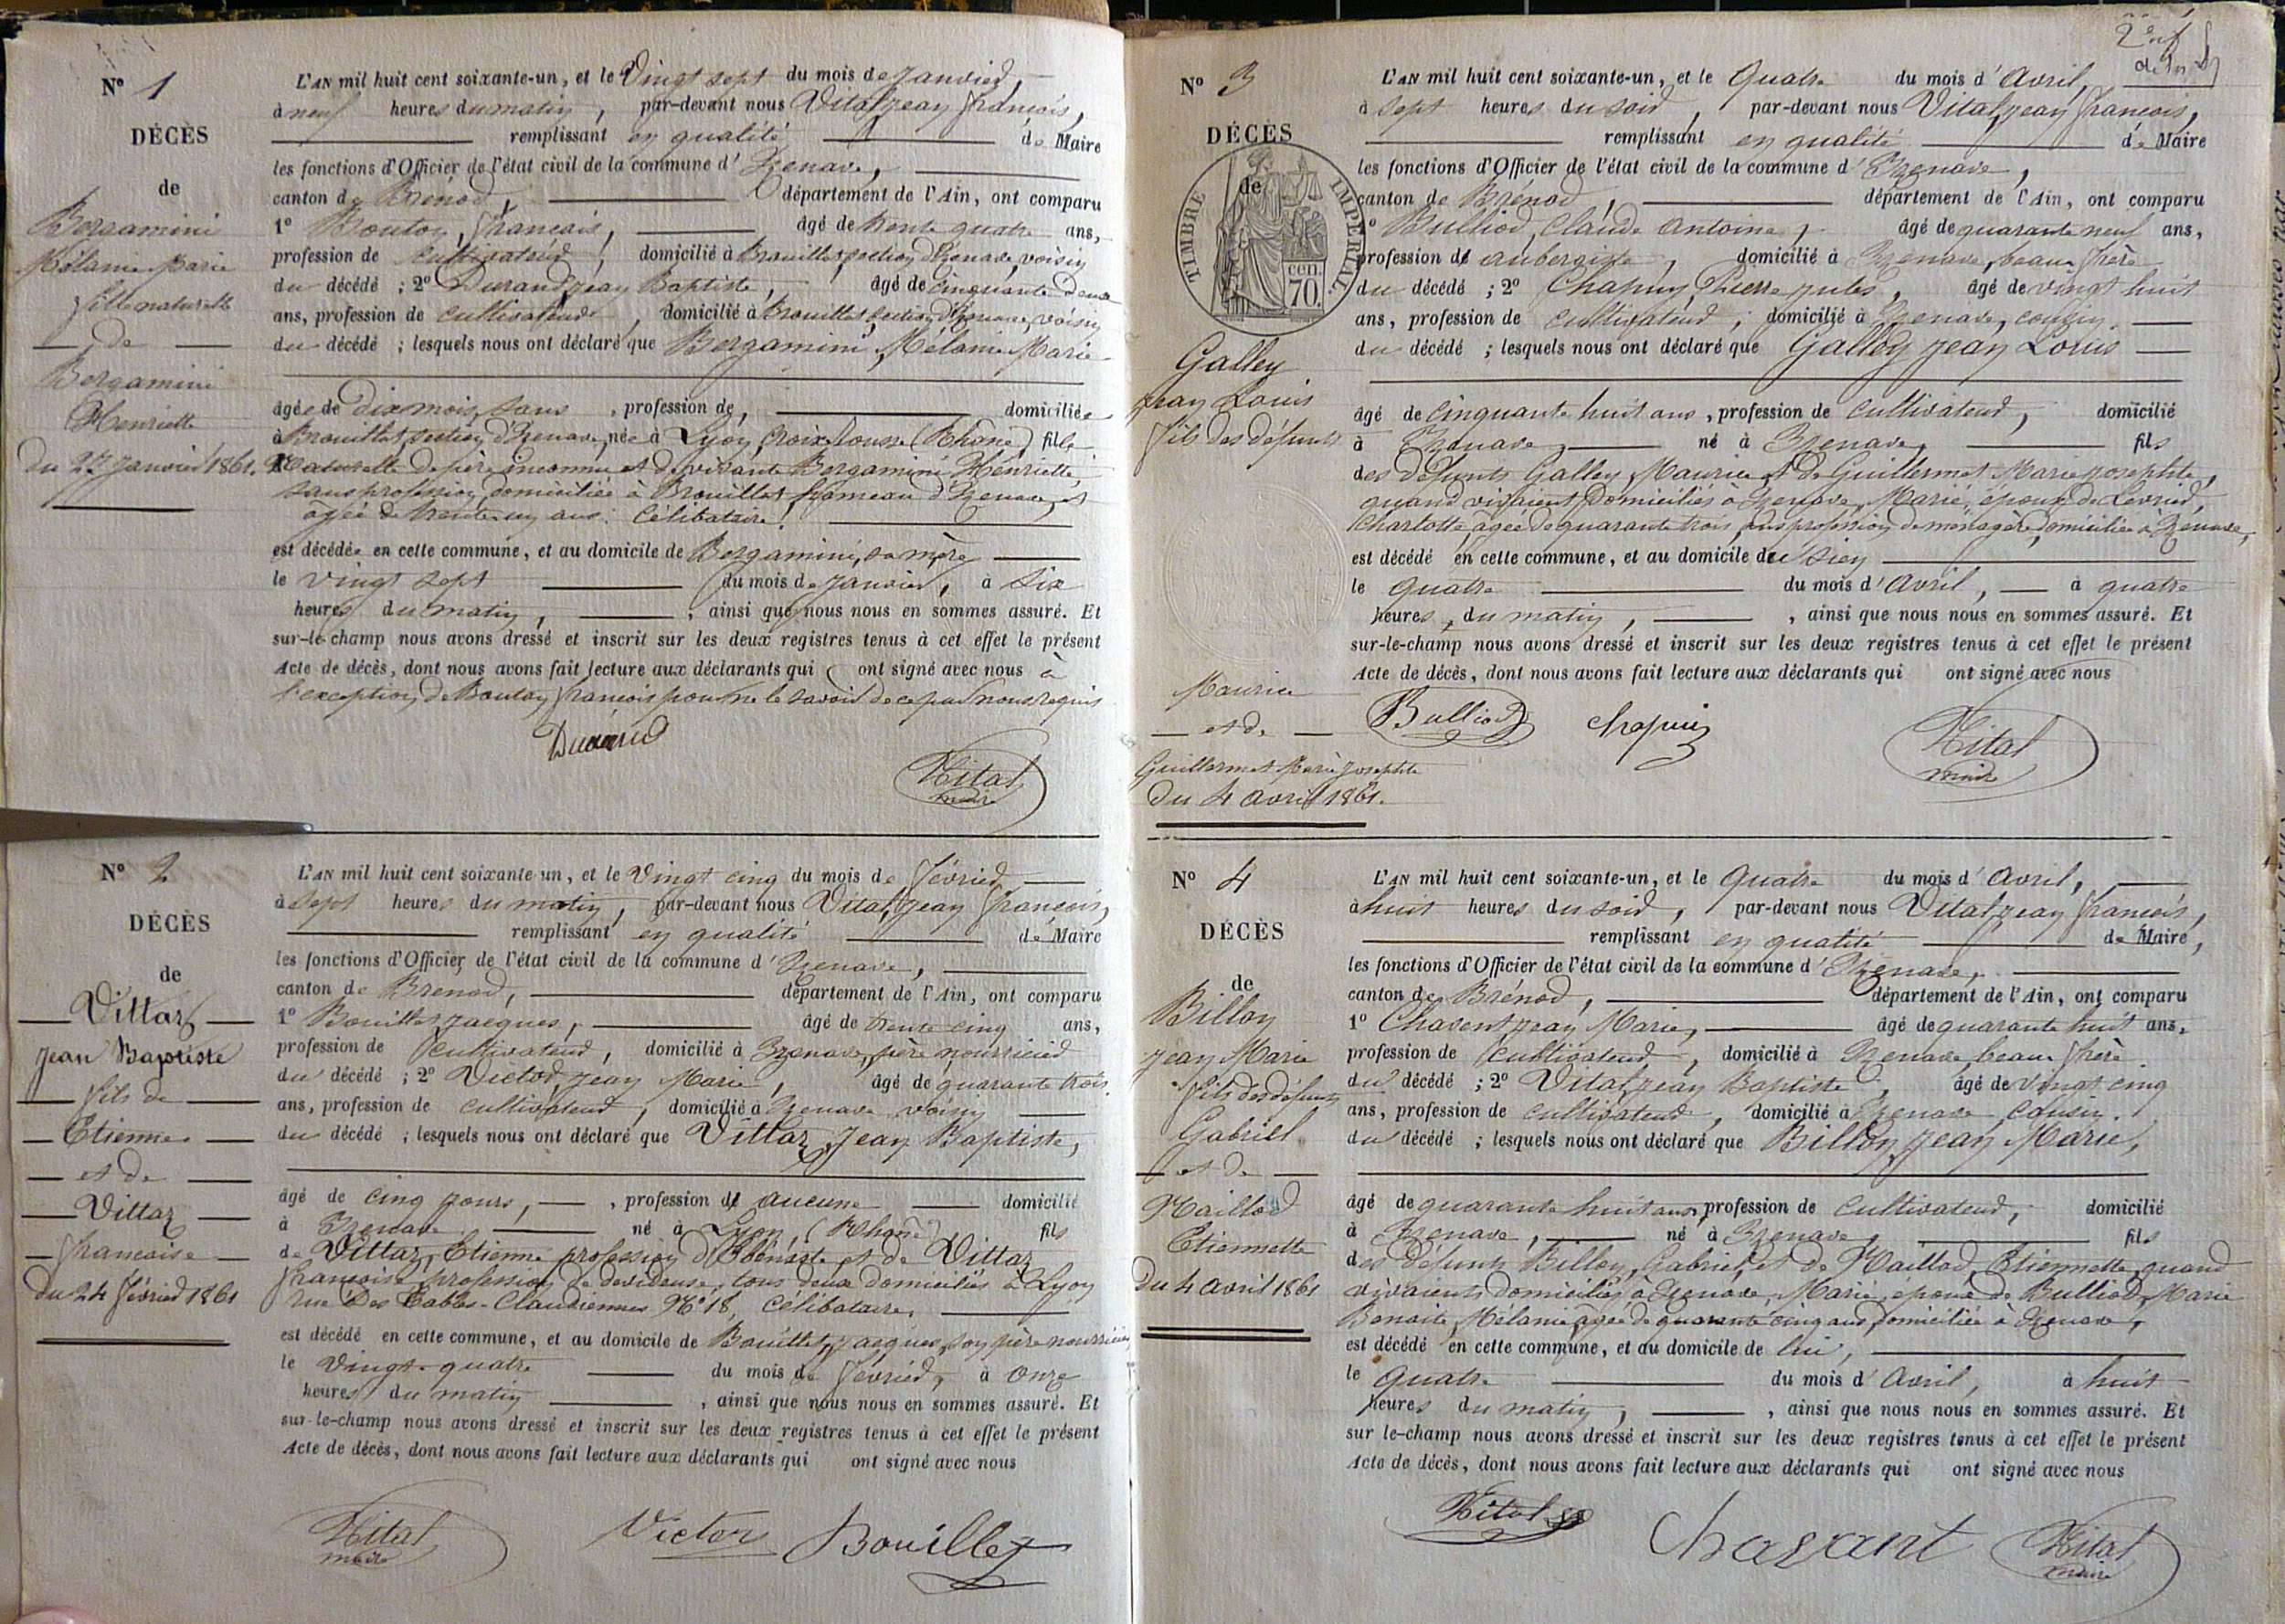 Nº 1
DÉCÈS
de
Bergamini
Mélanie Marie
fille naturelle
de
Bergamini
Henriette
Du 27 Janvier 1861.
L'AN mil huit cent soixante-un, et le Vingt sept du mois de Janvier,
à neuf heures du matin, par-devant nous Vital, Jean François,
remplissant en qualité de Maire
les fonctions d'Officier de l'état civil de la commune d'Izenave,
canton de Brénod, département de l'Ain, ont comparu
1º Bouton, François, âgé de trente quatre ans,
profession de cultivateur, domicilié à Brouillat, section d'Izenave, voisin
du décédé ; 2º Durand Jean Baptiste, âgé de cinquante deux
ans, profession de cultivateur, domicilié à Brouillat, section d'Izenave, voisin
du décédé ; lesquels nous ont déclaré que Bergamini, Mélanie Marie
âgée de dix mois, sans , profession de, domiciliée
à Brouillat, section d'Izenave, née à Lyon, Croix Rousse (Rhône) fille
Naturelle de père inconnu et de vivante Bergamini Henriette,
sans profession, domiciliée à Brouillat, hameau d'Izenave, et
agée de trente un ans. Célibataire.
est décédée en cette commune, et au domicile de Bergamini, sa mère
le vingt sept du mois de Janvier, à six
heures du matin, , ainsi que nous nous en sommes assuré. Et
sur-le-champ nous avons dressé et inscrit sur les deux registres tenus à cet effet le présent
Acte de décès, dont nous avons fait lecture aux déclarants qui ont signé avec nous à
l'exception de Bouton François pour ne le savoir de ce par nous requis
Durand
Vital
maire
Nº 2
DÉCÈS
de
Vittaz
Jean Baptiste
fils de
Etienne
et de
Vittaz
françoise
Du 24 février 1861
L'AN mil huit cent soixante-un, et le Vingt cinq du mois de février
à Sept heures du matin, par-devant nous Vital, Jean François,
remplissant en qualité de Maire
les fonctions d'Officier de l'état civil de la commune d'Izenave,
canton de Brenod, département de l'Ain, ont comparu
1º Bouillet Jacques, âgé de trente cinq ans,
profession de cultivateur, domicilié à Izenave, père nourricier
du décédé ; 2º Victor, Jean Marie, âgé de quarante trois
ans, profession de cultivateur, domicilié à Izenave voisin
du décédé ; lesquels nous ont déclaré que Vittaz, Jean Baptiste,
âgé de cinq jours, , profession de aucune domicilié
à Izenave né à Lyon, (Rhône) fils
de Vittaz, Etienne profession d'Ebéniste et de Vittaz
françoise profession de devideuse, tous deux domiciliés à Lyon
rue Des Tables-Claudiennes Nº 18, Célibataire.
est décédé en cette commune, et au domicile de Bouillet, Jacques, son père nourricier
le Vingt-quatre du mois de février, à onze
heures du matin , ainsi que nous nous en sommes assuré. Et
sur-le-champ nous avons dressé et inscrit sur les deux registres tenus à cet effet le présent
Acte de décès, dont nous avons fait lecture aux déclarants qui ont signé avec nous
Vital
maire
Victor Bouillet
Nº 3
DÉCÈS
de
TIMBRE IMPÉRIAL
70 cen.
Galley
Jean Louis
fils des défunts
Maurice
et de
Guillermet Marie Josephte
Du 4 avril 1861.
L'AN mil huit cent soixante-un, et le Quatre du mois d'Avril,
à Sept heures du soir, par-devant nous Vital, Jean François,
remplissant en qualité de Maire
les fonctions d'Officier de l'état civil de la commune d'Izenave,
canton de Brénod, département de l'Ain, ont comparu
1º Bulliod, Claude Antoine, âgé de quarante neuf ans,
profession de aubergiste, domicilié à Izenave, beau-frère
du décédé ; 2º Chapuy, Pierre Jules, âgé de vingt huit
ans, profession de cultivateur, domicilié à Izenave, cousin.
du décédé ; lesquels nous ont déclaré que Galley Jean Louis
âgé de cinquante huit ans, profession de cultivateur, domicilié
à Izenave né à Izenave, fils
des défunts Galley, Maurice et de Guillermet Marie Josephte,
quand vivaient domiciliés à Izenave, Marié, époux de Levrier,
Charlotte, agée de quarante trois, sans profession de ménagère, domiciliée à Izenave,
est décédé en cette commune, et au domicile du sien
le quatre du mois d'Avril, à quatre
heures, du matin, , ainsi que nous nous en sommes assuré. Et
sur-le-champ nous avons dressé et inscrit sur les deux registres tenus à cet effet le présent
Acte de décès, dont nous avons fait lecture aux déclarants qui ont signé avec nous
Bulliod chapuis Vital
maire
Nº 4
DÉCÈS
de
Billon
Jean Marie
fils des défunts
Gabriel
et de
Maillod
Etiennette
Du 4 avril 1861
L'AN mil huit cent soixante-un, et le Quatre du mois d'Avril,
à huit heures du soir, par-devant nous Vital, Jean François,
remplissant en qualité de Maire,
les fonctions d'Officier de l'état civil de la commune d'Izenave,
canton de Brénod, département de l'Ain, ont comparu
1º Chavent Jean Marie, âgé de quarante huit ans,
profession de cultivateur, domicilié à Izenave, beau frère
du décédé ; 2º Vital, Jean Baptiste, âgé de vingt cinq
ans, profession de cultivateur, domicilié à Izenave, Cousin.
du décédé ; lesquels nous ont déclaré que Billon, Jean Marie,
âgé de quarante huit ans, profession de cultivateur, domicilié
à Izenave, né à Izenave, fils
des défunts Billon, Gabriel, et de Maillod, Etiennette, quand
vivaient domiciliés à Izenave, Marié, époux de Bulliod, Marie
Benoite, Mélanie, agée de quarante cinq ans, domiciliée à Izenave,
est décédé en cette commune, et au domicile de lui,
le Quatre du mois d'Avril, à huit
heures du matin, , ainsi que nous nous en sommes assuré. Et
sur le-champ nous avons dressé et inscrit sur les deux registres tenus à cet effet le présent
Acte de décès, dont nous avons fait lecture aux déclarants qui ont signé avec nous
Vital Chavant Vital
maire